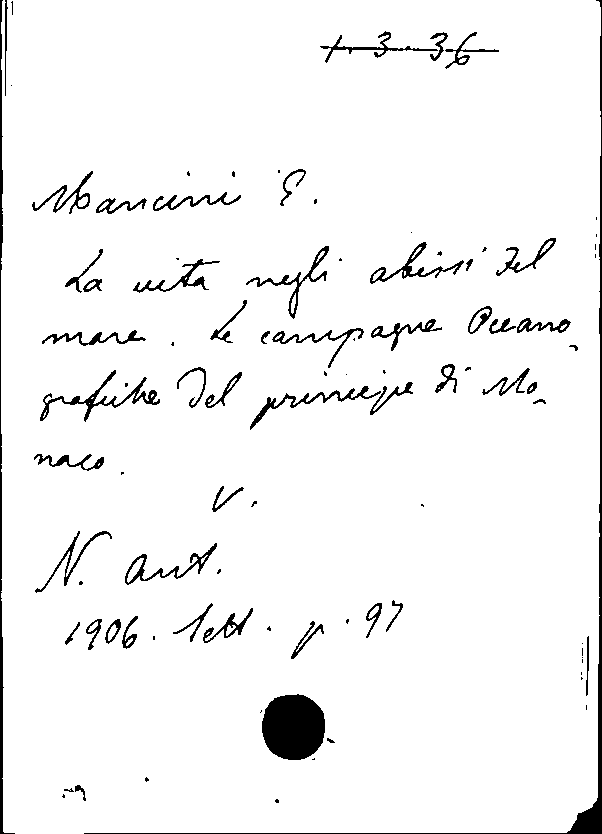 1. 3. 36
Mancini E.
La vita negli abissi del
mare. Le campagne Oceano-
grafiche del principe di Mo-
naco.
V.
N. Ant.
1906. Sett. p. 97